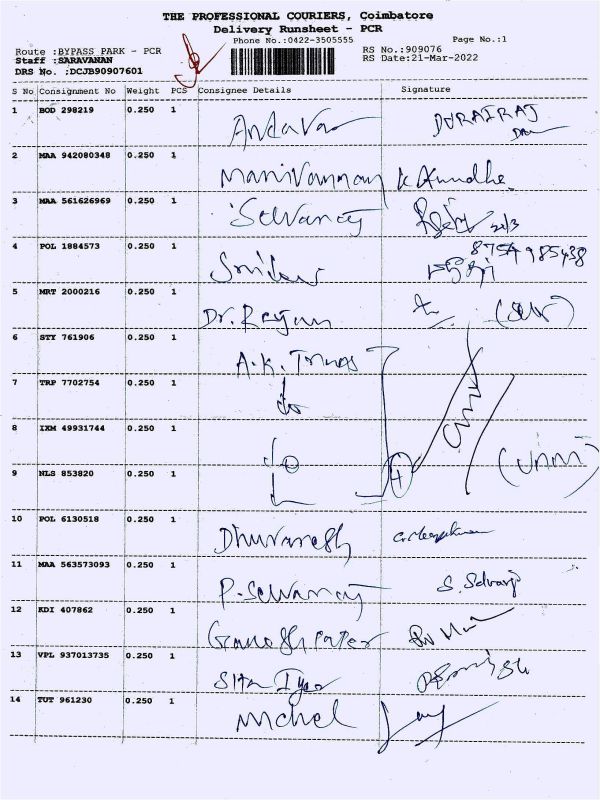 THE PROFESSIONAL COURIERS, Coimbatore
Delivery Runsheet - PCR
Phone No.:0422-3505555
Page No.:1
Route :BYPASS PARK - PCR
RS No.:909076
Staff :SARAVANAN
RS Date:21-Mar-2022
DRS No. :DCJB90907601
S No Consignment No Weight PCS Consignee Details Signature
1 BOD 298219 0.250 1 Andavar DURAIRAJ
2 MAA 942080348 0.250 1 Manivannan K Anudha
3 MAA 561626969 0.250 1 Selvaraj 21/3
8754985438
4 POL 1884573 0.250 1
5 MRT 2000216 0.250 1 Dr. Rajan
6 STY 761906 0.250 1 A.K. Trnas
7 TRP 7702754 0.250 1 do
8 IXM 49931744 0.250 1 do
9 NLS 853820 0.250 1 4
10 POL 6130518 0.250 1 Dhuvanesh
11 MAA 563573093 0.250 1 P. Selvaraj S. Selvaraj
12 KDI 407862 0.250 1 Ganesh
13 VPL 937013735 0.250 1 Sita Iyer
14 TUT 961230 0.250 1 Michel